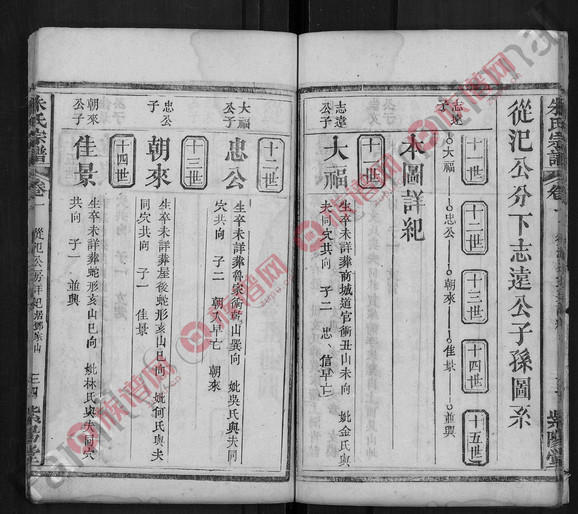 朱氏宗譜
卷一
紫陽堂
從汜公分下志遠公子孫圖系
十一世
十二世
十三世
十四世
十五世
志遠子
大福
忠公
朝來
佳景
並興
本圖詳紀
十一世
志遠公子
大福
生卒未詳葬商城道官衝丑山未向 妣金氏與
夫同穴共向 子二 忠、信早亡
十二世
大福公子
忠公
生卒未詳葬魯家衝乾山巽向 妣吳氏與夫同
穴共向 子二 朝又早亡 朝來
十三世
忠公子
朝來
生卒未詳葬屋後蛇形亥山巳向 妣何氏與夫
同穴共向 子一 佳景
十四世
朝來公子
佳景
生卒未詳葬蛇形亥山巳向 妣林氏與夫同穴
共向 子一 並興
朱氏宗譜
卷一
從汜公房詳紀
三四
紫陽堂
族譜網